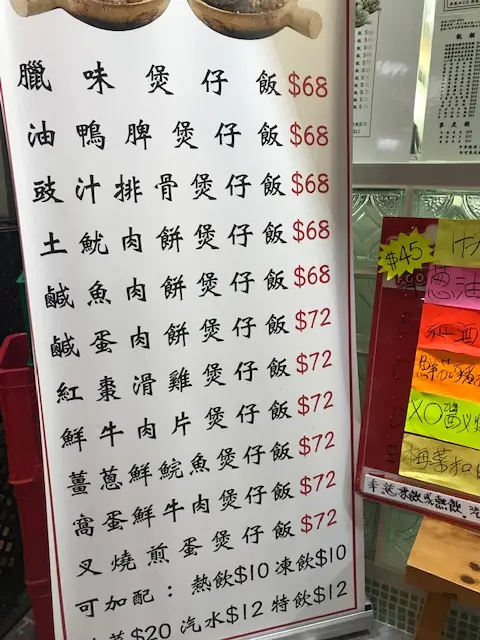 臘味煲仔飯 $68
油鴨脾煲仔飯 $68
豉汁排骨煲仔飯 $68
土魷肉餅煲仔飯 $68
鹹魚肉餅煲仔飯 $68
鹹蛋肉餅煲仔飯 $72
紅棗滑雞煲仔飯 $72
鮮牛肉片煲仔飯 $72
薑蔥鮮鯇魚煲仔飯 $72
窩蛋鮮牛肉煲仔飯 $72
叉燒煎蛋煲仔飯 $72
可加配：熱飲$10 凍飲$10
$20 汽水$12 特飲$12
$45
蔥油
紅酒
XO醬